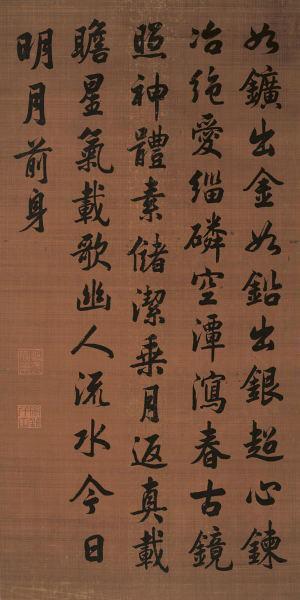 如鑛出金如鉛出銀超心鍊
冶絶愛緇磷空潭瀉春古鏡
照神體素儲潔乗月返真載
瞻星氣載歌幽人流水今日
明月前身